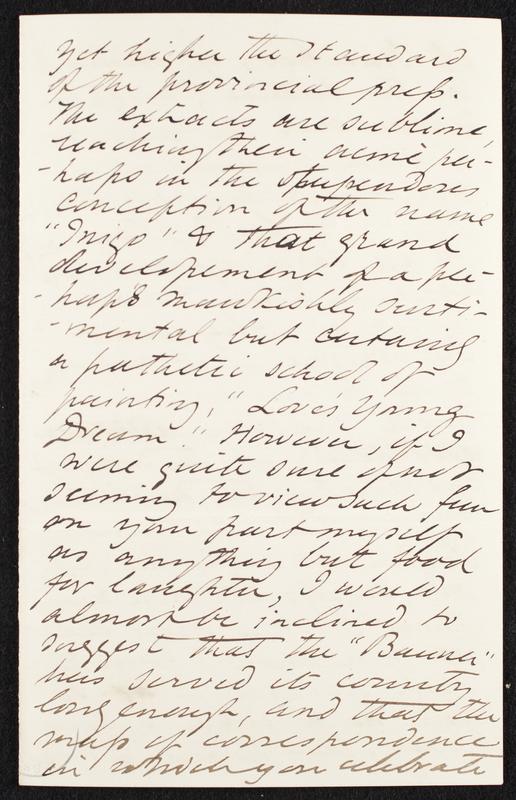 yet higher the standard
of the provincial press.
The extracts are sublime,
reaching their acmè per-
-haps in the stupendous
conception of the name
"Inigo" & that grand
developement of a per-
-haps mawkishly senti-
-mental but certainly
a pathetic school of
painting, "Love's Young
Dream." However, if I
were quite sure of not
seeming to view such fun
on your part myself
as anything but food
for laughter, I would
almost be inclined to
suggest that the "Banner"
has served its county
long enough, and that the
mass of correspondence
in which you celebrate